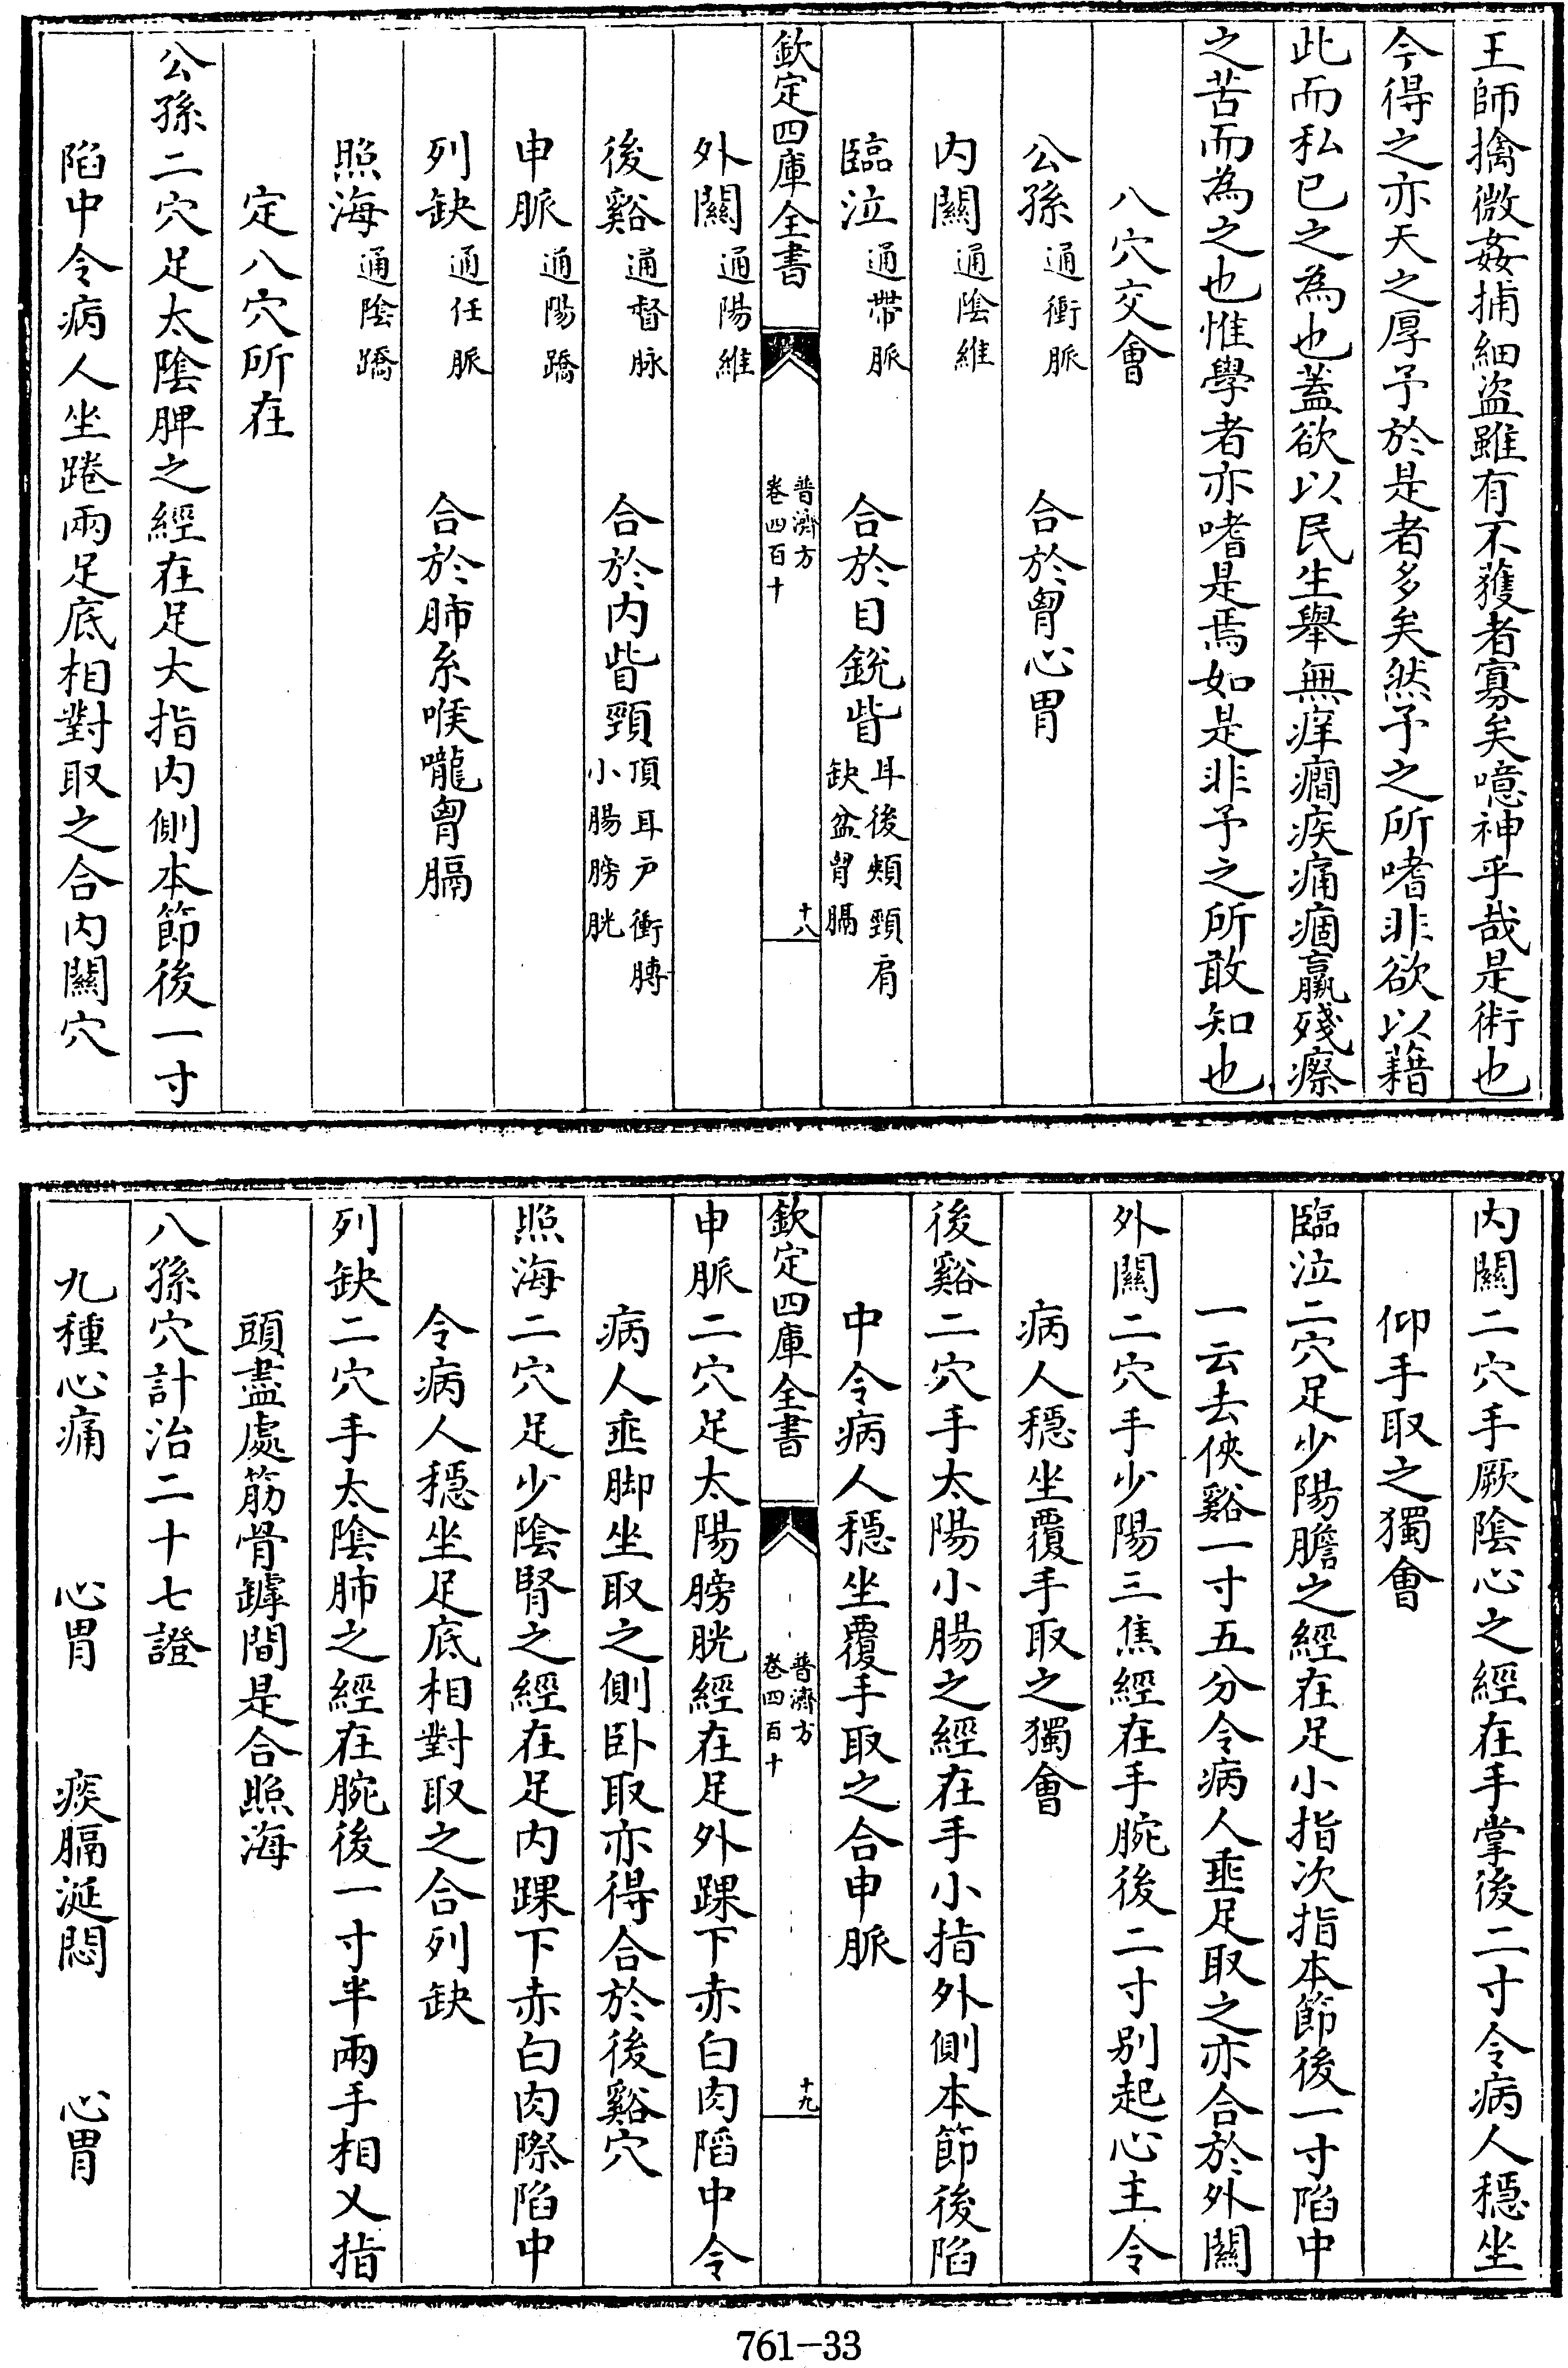 王師擒微姦捕細盜雖有不獲者寡矣噫神乎哉是術也
今得之亦天之厚予於是者多矣然予之所嗜非欲以藉
此而私已之為也蓋欲以民生舉無痒癎疾痛痼羸殘瘵
之苦而為之也惟學者亦嗜是焉如是非予之所敢知也
八穴交會
公孫通衝脈 合於胷心胃
内關通陰維
臨泣通帶脈 合於目銳眥耳後頰頸肩缺盆胷膈
欽定四庫全書 普濟方卷四百十 十八
外關通陽維
後谿通督脉 合於内眥頸頂耳戶衝膊小腸膀胱
申脈通陽蹻
列缺通任脈 合於肺系喉嚨胷膈
照海通陰蹻
定八穴所在
公孫二穴足太陰脾之經在足大指内側本節後一寸
陷中令病人坐踡兩足底相對取之合内關穴
内關二穴手厥陰心之經在手掌後二寸令病人穩坐
仰手取之獨會
臨泣二穴足少陽膽之經在足小指次指本節後一寸陷中
一云去俠谿一寸五分令病人垂足取之亦合於外關
外關二穴手少陽三焦經在手腕後二寸別起心主令
病人穩坐覆手取之獨會
後谿二穴手太陽小腸之經在手小指外側本節後陷
中令病人穩坐覆手取之合申脈
欽定四庫全書 普濟方卷四百十 十九
申脈二穴足太陽膀胱經在足外踝下赤白肉陷中令
病人垂脚坐取之側卧取亦得合於後谿穴
照海二穴足少陰腎之經在足内踝下赤白肉際陷中
令病人穩坐足底相對取之合列缺
列缺二穴手太陰肺之經在腕後一寸半兩手相乂指
頭盡處筋骨罅間是合照海
八孫穴計治二十七證
九種心痛 心胃 痰膈涎悶 心胃
761-33